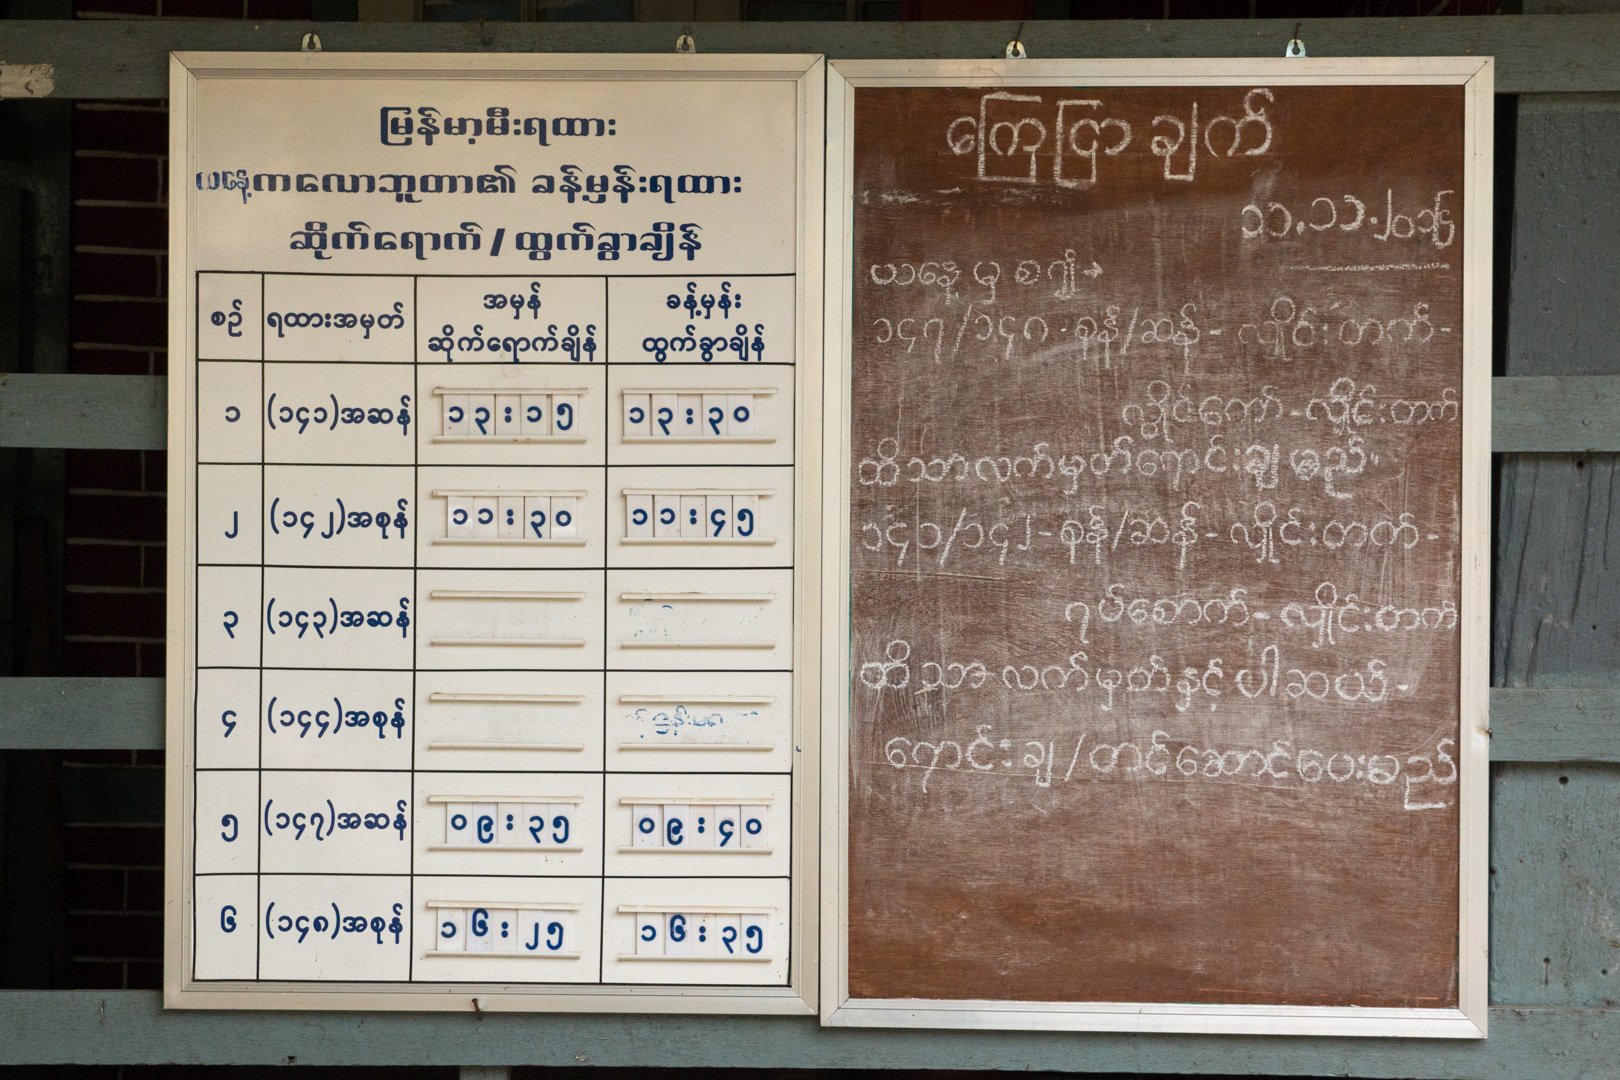 မြန်မာ့မီးရထား
ယနေ့ကလောဘူတာ၏ ခန့်မှန်းရထား
ဆိုက်ရောက် / ထွက်ခွာချိန်
စဉ် ရထားအမှတ် အမှန် ဆိုက်ရောက်ချိန် ခန့်မှန်း ထွက်ခွာချိန်
၁ (၁၄၁)အဆန် ၁၃:၁၅ ၁၃:၃၀
၂ (၁၄၂)အစုန် ၁၁:၃၀ ၁၁:၄၅
၃ (၁၄၃)အဆန်
၄ (၁၄၄)အစုန်
၅ (၁၄၇)အဆန် ၀၉:၃၅ ၀၉:၄၀
၆ (၁၄၈)အစုန် ၁၆:၂၅ ၁၆:၃၅
ကြေငြာချက်
၁၁.၁၁.၂၀၁၆
ယနေ့မှစ၍→
၁၄၇/၁၄၈-စုန်/ဆန်-လှိုင်းတက်-
လွိုင်ကော်-လှိုင်းတက်
ထိသာလက်မှတ်ရောင်းချမည်။
၁၄၁/၁၄၂-စုန်/ဆန်-လှိုင်းတက်-
ရပ်စောက်-လှိုင်းတက်
ထိသာလက်မှတ်နှင့်ပါဆယ်-
ရောင်းချ/တင်ဆောင်ပေးမည်